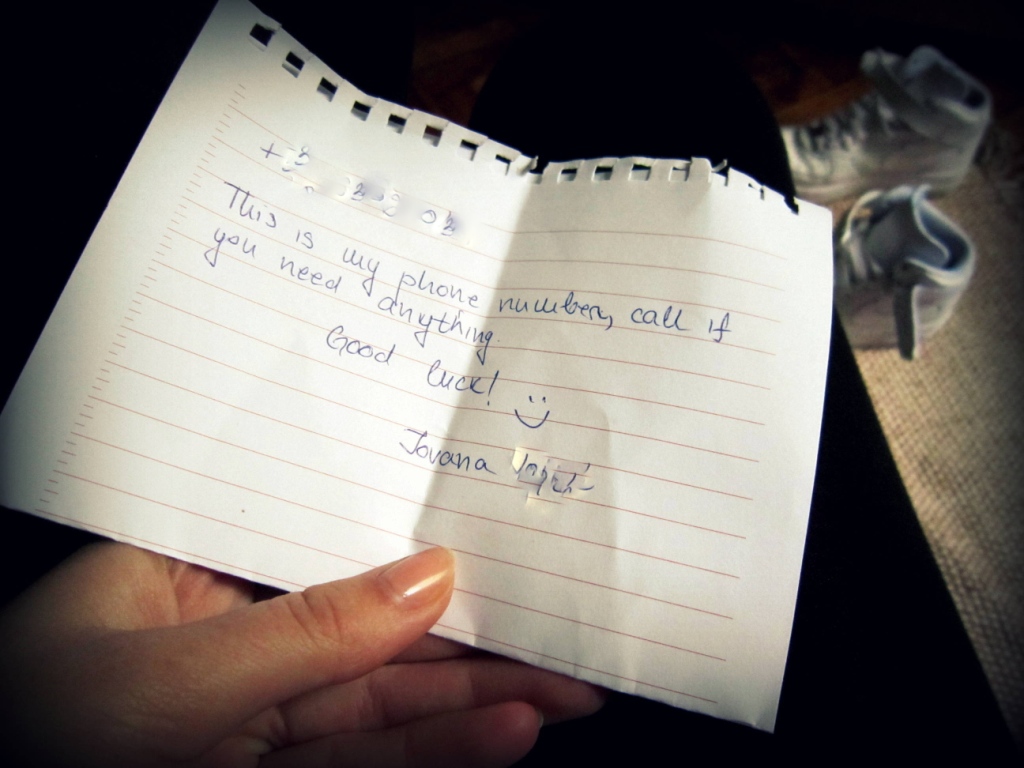 This is my phone number, call if
you need anything.
Good luck! :)
Jovana